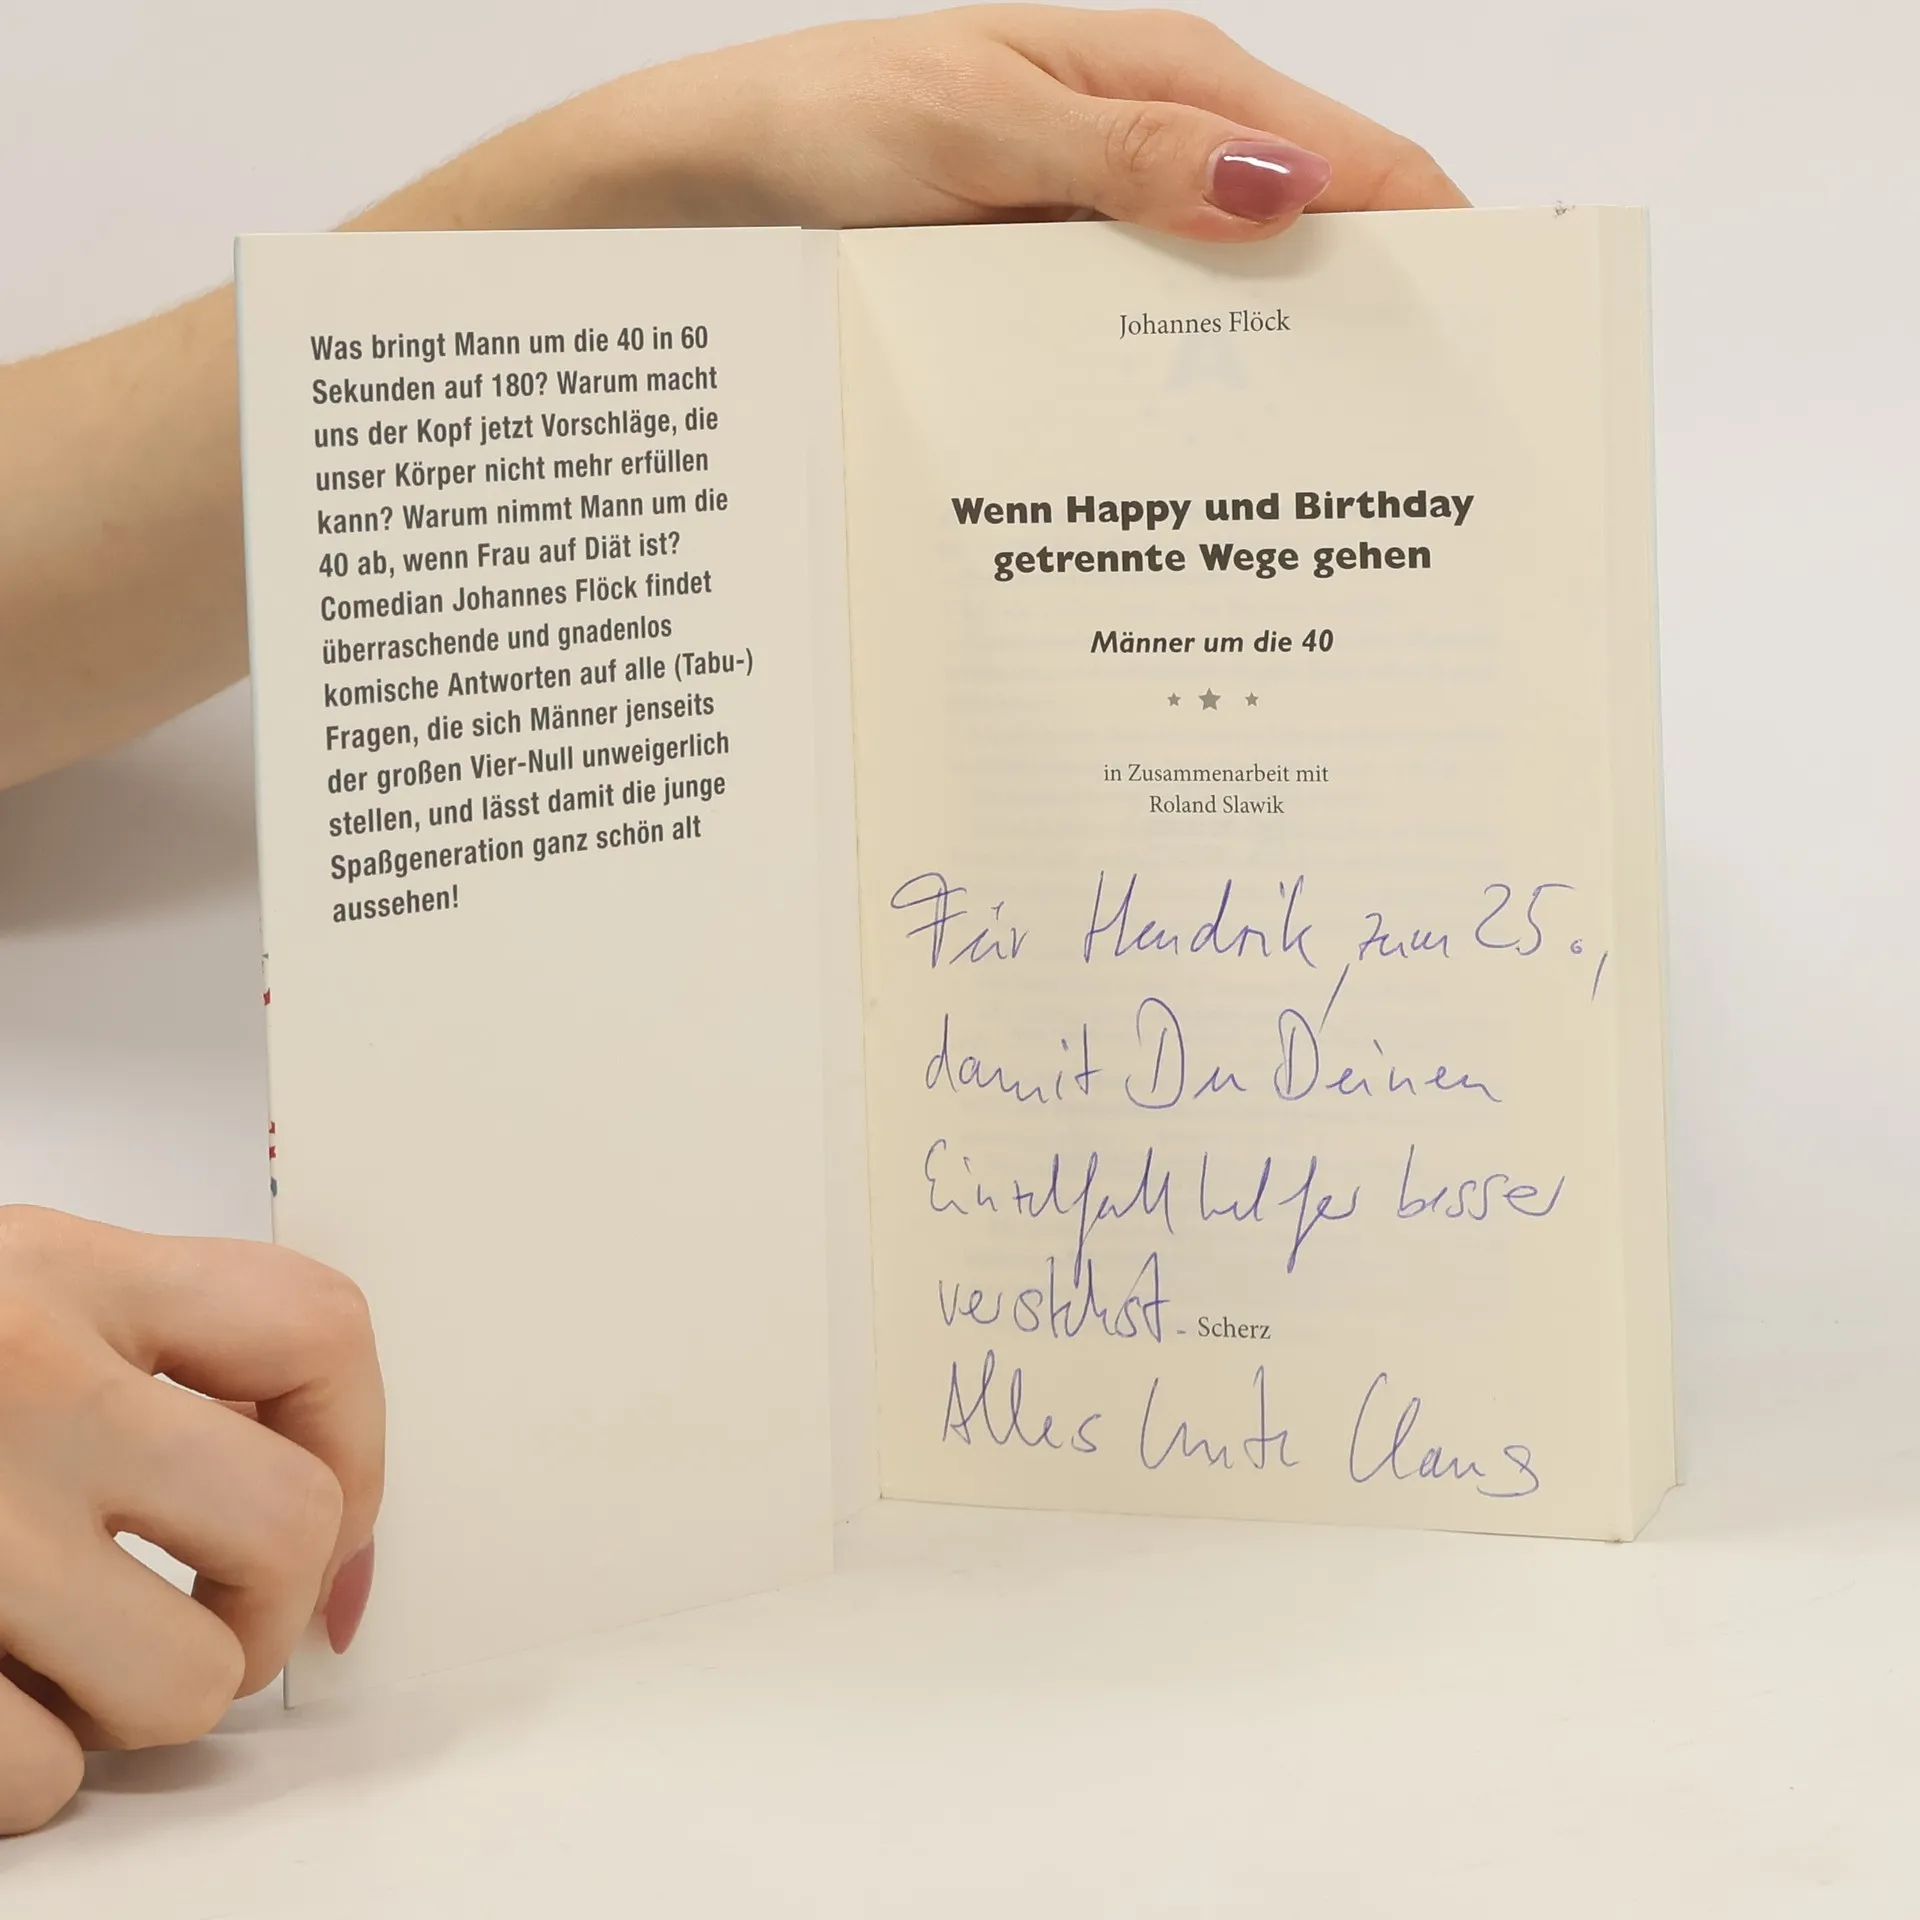 Was bringt Mann um die 40 in 60
Sekunden auf 180? Warum macht
uns der Kopf jetzt Vorschläge, die
unser Körper nicht mehr erfüllen
kann? Warum nimmt Mann um die
40 ab, wenn Frau auf Diät ist?
Comedian Johannes Flöck findet
überraschende und gnadenlos
komische Antworten auf alle (Tabu-)
Fragen, die sich Männer jenseits
der großen Vier-Null unweigerlich
stellen, und lässt damit die junge
Spaßgeneration ganz schön alt
aussehen!
Johannes Flöck
Wenn Happy und Birthday
getrennte Wege gehen
Männer um die 40
in Zusammenarbeit mit
Roland Slawik
Für Hendrik, zum 25.,
damit Du Deinen
Einzelfallhelfer besser
verstehst.
Scherz
Alles Gute Claus